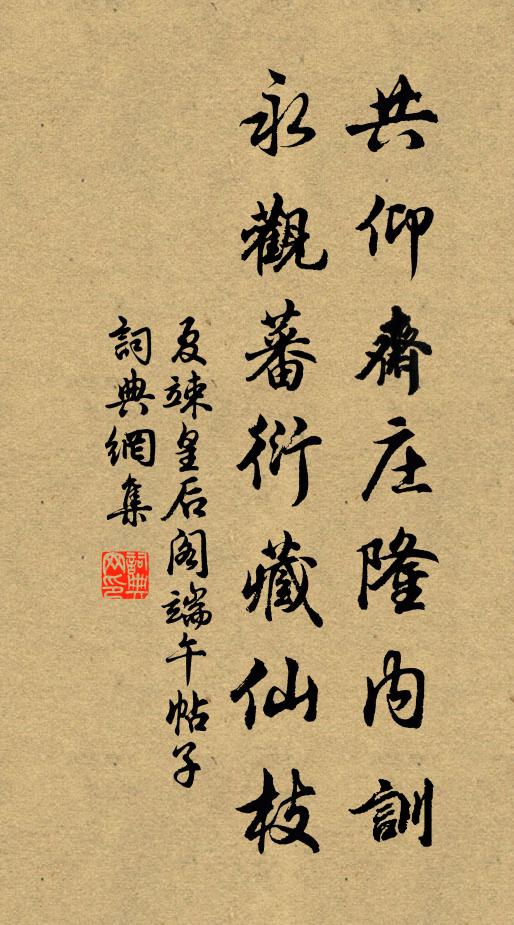 共仰齋庄隆内訓
永觀蕃衍藏仙枝
夏竦皇后阁端午帖子
詞典網集
詞典
网印